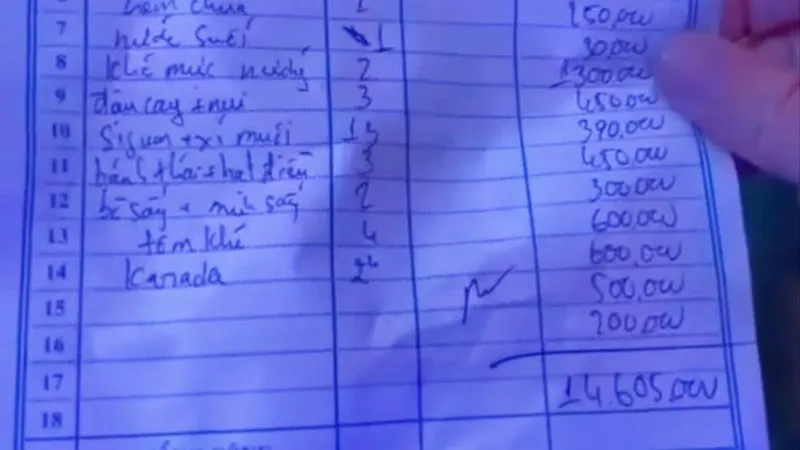 nem chua 1 250,000
7 nước suối 1 30,000
8 khô mực nướng 2 1300,000
9 đậu cay + nui 3 450,000
10 Sigum + xí muội 13 390,000
11 bánh + hạt điều 3 450,000
12 bò sấy + mực sấy 2 300,000
13 tôm khô 4 600,000
14 Kanada 2 600,000
15 500,000
16 200,000
17 14.605,000
18